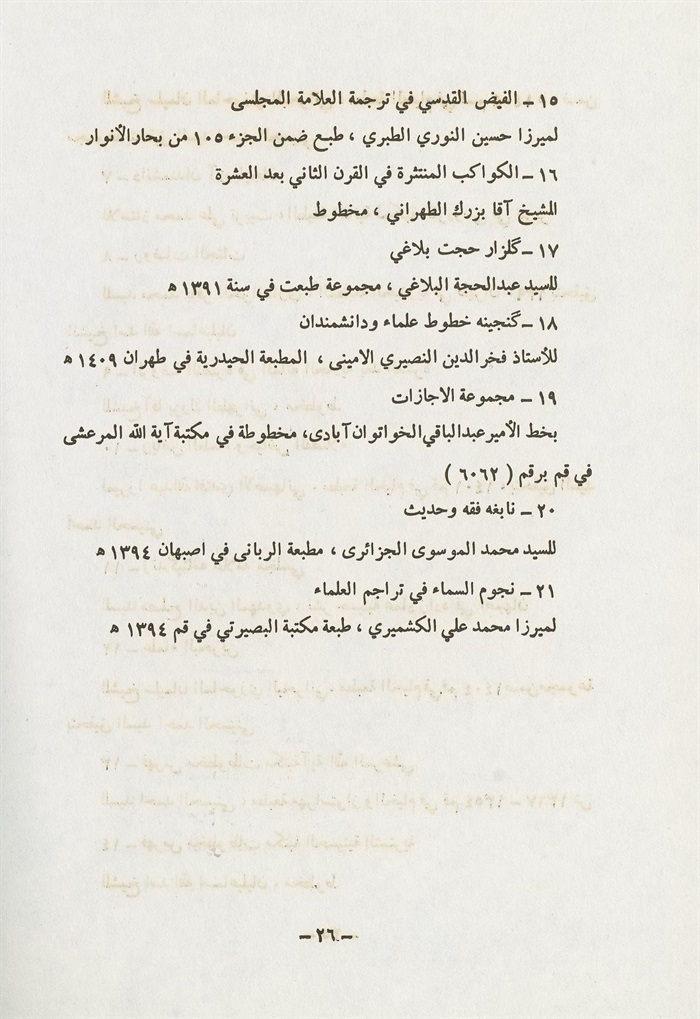 ١٥ ـ الفيض القدسي في ترجمة العلامة المجلسى
لميرزا حسين النوري الطبري ، طبع ضمن الجزء ١٠٥ من بحارالأنوار
١٦ ـ الكواكب المنتثرة في القرن الثاني بعد العشرة
للشيخ آقا بزرك الطهراني ، مخطوط
١٧ ـ گلزار حجت بلاغي
للسيد عبدالحجة البلاغي ، مجموعة طبعت في سنة ١٣٩١ ه
١٨ ـ گنجينه خطوط علماء ودانشمندان
للأستاذ فخرالدين النصيري الامينى ، المطبعة الحيدرية في طهران ١٤٠٩ ه
١٩ ـ مجموعة الاجازات
بخط الأمير عبدالباقي الخواتوان آبادى، مخطوطة في مكتبة آية الله المرعشى
في قم برقم ( ٦٠٦٢ )
٢٠ ـ نابغه فقه وحديث
للسيد محمد الموسوى الجزائرى ، مطبعة الربانى في اصبهان ١٣٩٤ ه
٢١ ـ نجوم السماء في تراجم العلماء
لميرزا محمد علي الكشميري ، طبعة مكتبة البصيرتي في قم ١٣٩٤ ه
ـ ٢٦ ـ